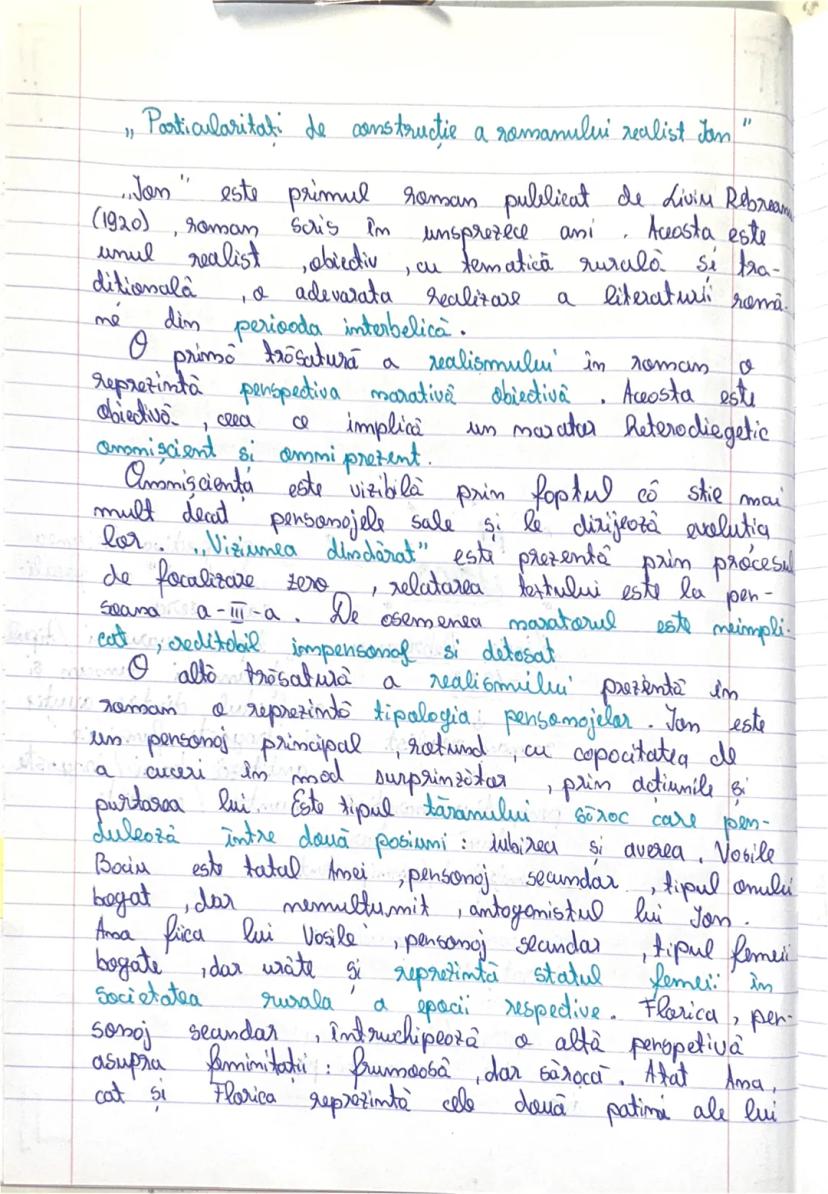 „Particularitați de construcție a romanului realist Ion"
„Ion" este primul roman publicat de Liviu Rebreanu
(1920), roman scris în unsprezece ani. Aceasta este
unul realist, obiectiv, cu tematică rurală și tra-
dițională, o adevarata realizare a literaturii româ-
ne din perioada interbelică.
O primă trăsatură a realismului in roman o
reprezintă perspectiva narativă obiectivă. Aceasta este
obiectivă, ceea ce implică un narator heterodiegetic
omniscient si omniprezent.
Omnisciența este vizibilă prin faptul că stie mai
mult decat personajele sale și le dirijează evolutia
lor. „Viziunea dindărat" este prezentă prin procesul
de focalizare zero, relatarea textului este la per-
soana a-III-a. De asemenea naratorul este neimpli-
cat, creditabil impersonal si detasat
O altă trăsatură a realismului prezentă in
roman o reprezintă tipologia personajelor. Ion este
un personaj principal, rotund, cu capacitatea de
a cuceri în mod surprinzător, prin acțiunile și
purtarea lui. Este tipul tăranului sărac care pen-
dulează între două pasiuni: iubirea și averea. Vasile
Baciu este tatal Anei, personaj secundar, tipul omului
bogat, dar nemultumit, antagonistul lui Ion.
Ana fiica lui Vasile, personaj secundar, tipul femeii
bogate, dar urâte și reprezintă statul femeii în
societatea rurala a epocii respective. Florica, per-
sonaj secundar, întruchipează o altă perspetivă
asupra feminitații: frumoasă, dar săracă. Atat Ana,
cat și Florica reprezintă cele două patimi ale lui